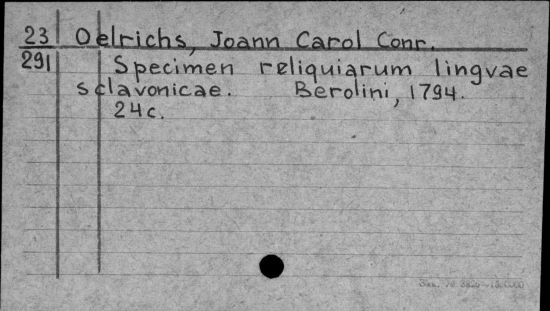 23 Oelrichs, Joann Carol Conr.
291 Specimen reliquiarum lingvae
sclavonicae. Berolini, 1794.
24c.